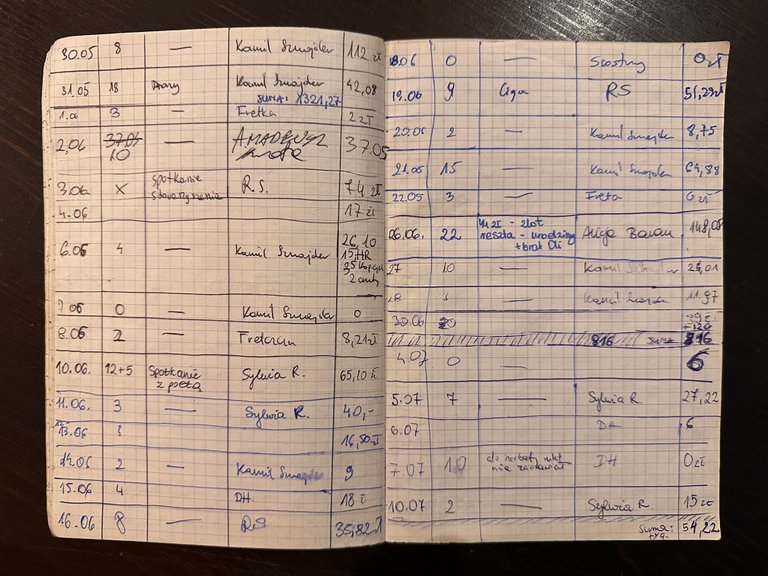 30.05 8 — Kamil Sznajder 112 zł
31.05 18 Kamil Sznajder 42,08
SUMA: 1321,27
1.06 3 — Fretka 2 zł
2.06 37.05 10 — 37.05
3.06 X spotkanie stowarzyszenia R.S. 74 zł
4.06 17 zł
6.06 4 — Kamil Sznajder 26,10
2 centy
7.06 0 — Kamil Sznajder 0
8.06 2 — 8,21 zł
10.06. 12+5 Spotkanie z poetą Sylwia R. 65,10 zł
11.06. 3 — Sylwia R. 40,-
13.06 1 16,50 zł
14.06 2 — Kamil 9
15.06 4 DH. 18 zł
16.06 8 — RS 35,82 zł
18.06 0 — 0 zł
19.06 9 RS 51,29 zł
20.06 2 — Kamil Sznajder 8,75
21.06 15 — Kamil Sznajder 64,88
22.05 3 — 0 zł
26.06. 22 44 zł - zlot
reszta - urodziny
+ brat Oli
Alicja Baran 148,08
27 10 — Kamil
1 — Kamil Sznajder 11.97
30.06 20 39 zł
+120
816 suma 816
4.07 0 — 6
5.07 7 — Sylwia R. 27,22
6.07 DH 6
7.07 10 do herbaty nikt
nie zamawiał
DH 0 zł
10.07 2 — Sylwia R. 15 zł
suma: 54,22
tyg.